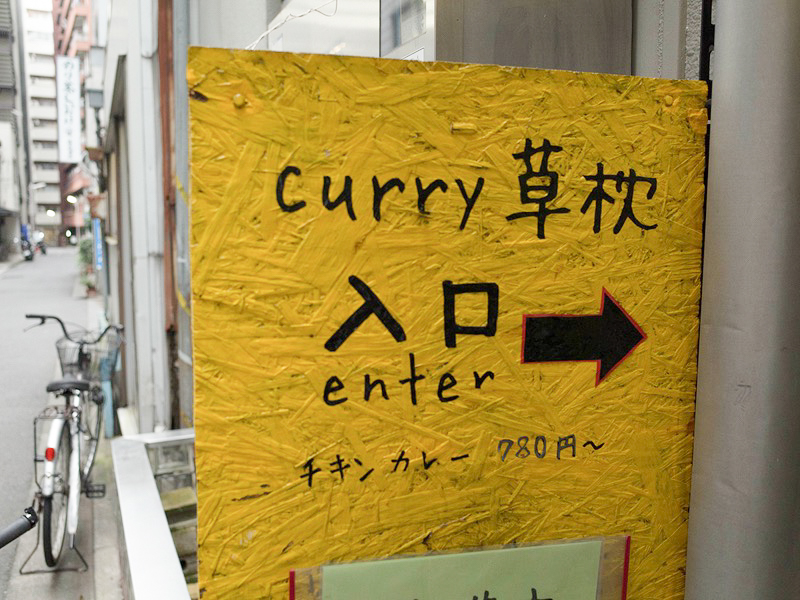 curry 草枕
入口
enter
チキンカレー 780円～